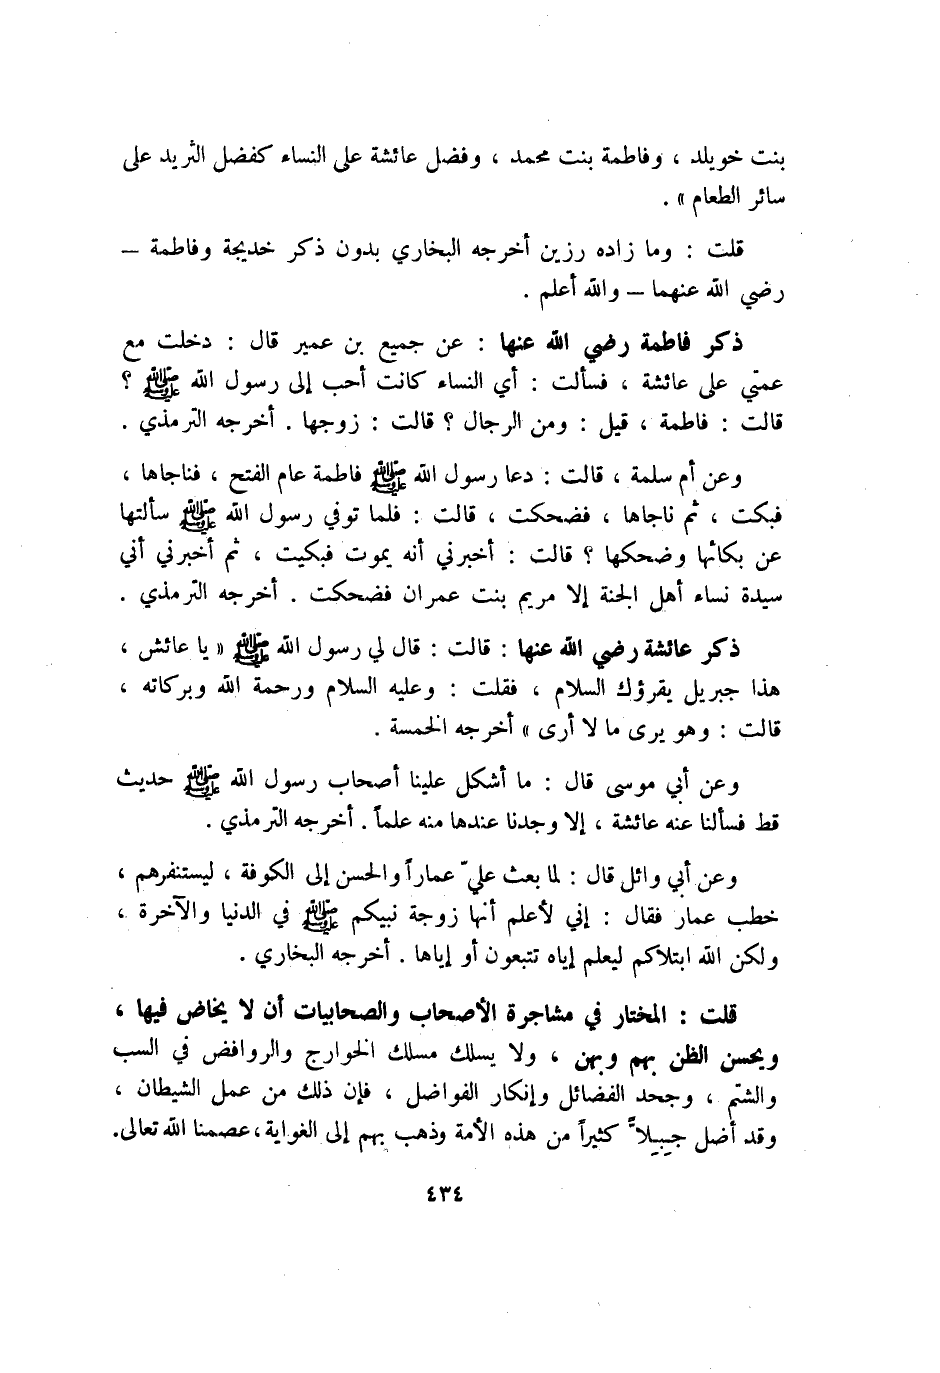 بنت خويلد ، وفاطمة بنت محمد ، وفضل عائشة على النساء كفضل الثريد على
سائر الطعام » .
قلت : وما زاده رزين أخرجه البخاري بدون ذكر خديجة وفاطمة –
رضي الله عنهما – والله أعلم .
ذكر فاطمة رضي الله عنها : عن جميع بن عمير قال : دخلت مع
عمتي على عائشة ، فسألت : أي النساء كانت أحب إلى رسول الله ﷺ ؟
قالت : فاطمة ، قيل : ومن الرجال ؟ قالت : زوجها . أخرجه الترمذي .
وعن أم سلمة ، قالت : دعا رسول الله ﷺ فاطمة عام الفتح ، فناجاها ،
فبكت ، ثم ناجاها ، فضحكت ، قالت : فلما توفي رسول الله ﷺ سألتها
عن بكائها وضحكها ؟ قالت : أخبرني أنه يموت فبكيت ، ثم أخبرني أني
سيدة نساء أهل الجنة إلا مريم بنت عمران فضحكت . أخرجه الترمذي .
ذكر عائشة رضي الله عنها : قالت : قال لي رسول الله ﷺ « يا عائش ،
هذا جبريل يقرؤك السلام ، فقلت : وعليه السلام ورحمة الله وبركاته ،
قالت : وهو يرى ما لا أرى » أخرجه الخمسة .
وعن أبي موسى قال : ما أشكل علينا أصحاب رسول الله ﷺ حديث
قط فسألنا عنه عائشة ، إلا وجدنا عندها منه علماً . أخرجه الترمذي .
وعن أبي وائل قال : لما بعث عليّ عماراً والحسن إلى الكوفة ، ليستنفرهم ،
خطب عمار فقال : إني لأعلم أنها زوجة نبيكم ﷺ في الدنيا والآخرة ،
ولكن الله ابتلاكم ليعلم إياه تتبعون أو إياها . أخرجه البخاري .
قلت : المختار في مشاجرة الأصحاب والصحابيات أن لا يخاض فيها ،
ويحسن الظن بهم وبهن ، ولا يسلك مسلك الخوارج والروافض في السب
والشتم ، وجحد الفضائل وإنكار الفواضل ، فإن ذلك من عمل الشيطان ،
وقد أضل جِبِلاًّ كثيراً من هذه الأمة وذهب بهم إلى الغواية ، عصمنا الله تعالى.
٤٣٤